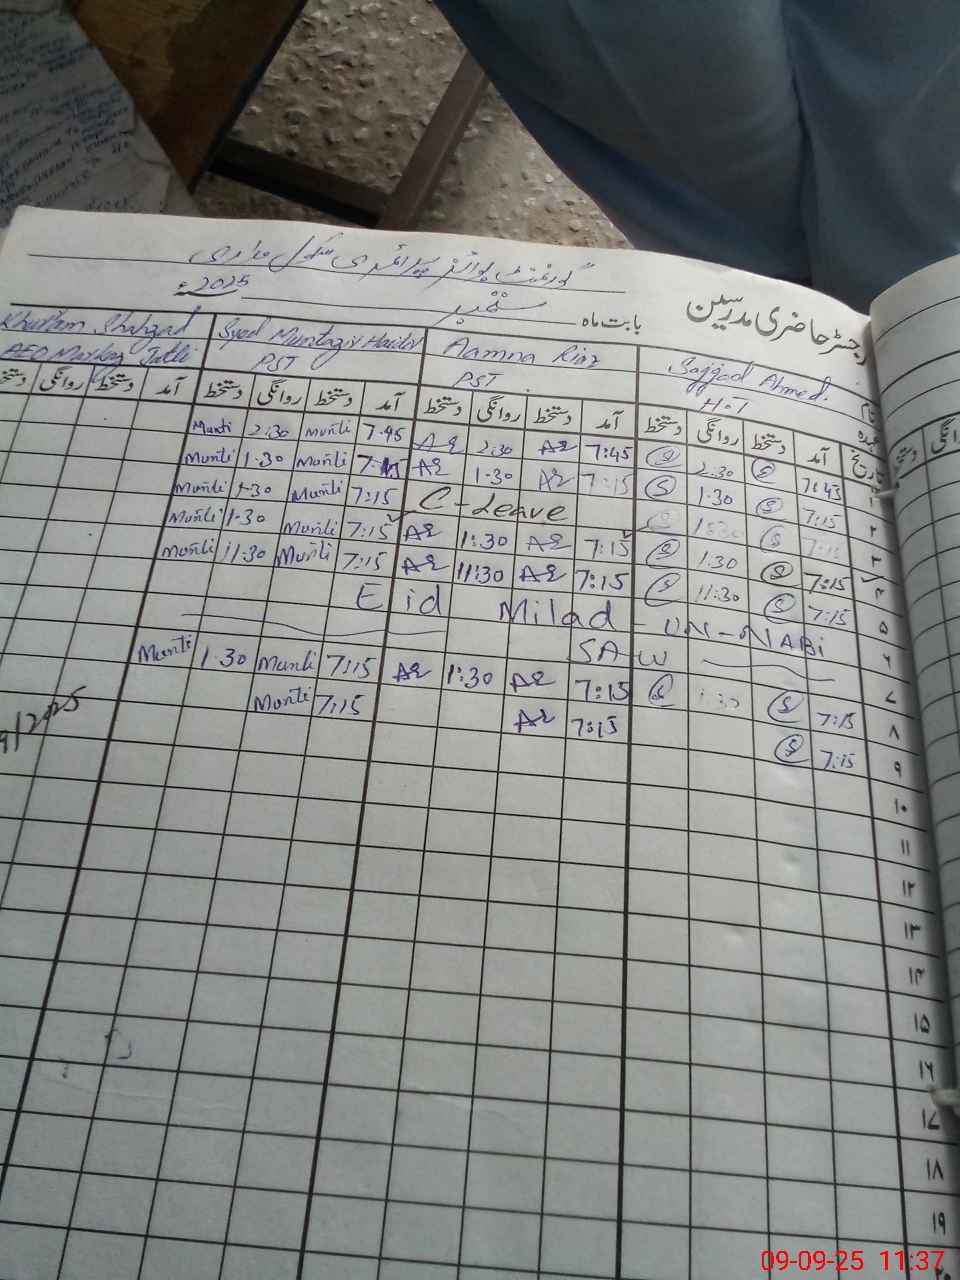 گورنمنٹ بوائز پرائمری سکول
رجسٹر حاضری مدرسین بابت ماہ ستمبر 2025ء
نام Sajjad Ahmed. Aamna Riaz Syed Muntazir Haider Khurram Shahzad
عہدہ H.T PST PST AEO Markaz Jatli
تاریخ آمد دستخط روانگی دستخط آمد دستخط روانگی دستخط آمد دستخط روانگی دستخط آمد دستخط روانگی دستخط
۱ 7:45 S 2:30 S 7:45 AR 2:30 AR 7:45 Munti 2:30 Munti
۲ 7:15 S 1:30 S 7:15 AR 1:30 AR 7:15 Munti 1:30 Munti
۳ 7:15 S 1:30 S C-Leave 7:15 Munti 1:30 Munti
۴ 7:15 S 1:30 S 7:15 AR 1:30 AR 7:15 Munti 1:30 Munti
۵ 7:15 S 11:30 S 7:15 AR 11:30 AR 7:15 Munti 11:30 Munti
۶ Eid Milad-UN-NABi
۷ SAW
۸ 7:15 S 1:30 S 7:15 AR 1:30 AR 7:15 Munti 1:30 Munti
۹ 7:15 S 7:15 AR 7:15 Munti
9/2025
۱۰
۱۱
۱۲
۱۳
۱۴
۱۵
۱۶
۱۷
۱۸
۱۹
۲۰
روانگی
دستخط
09-09-25 11:37